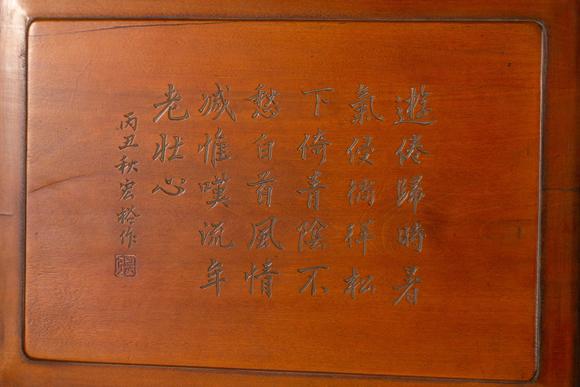 遊倦歸時暑
氣侵徜徉松
下倚青陰不
愁白首風情
減惟嘆流年
老壯心
丙丑秋宏裕作